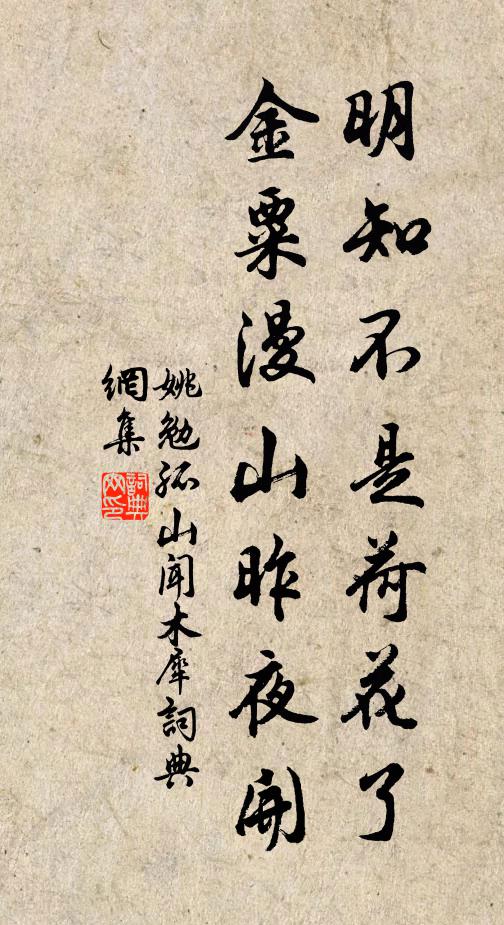 明知不是荷花了
金粟漫山昨夜開
姚勉孤山聞木犀詞典
網集
詞典
網印